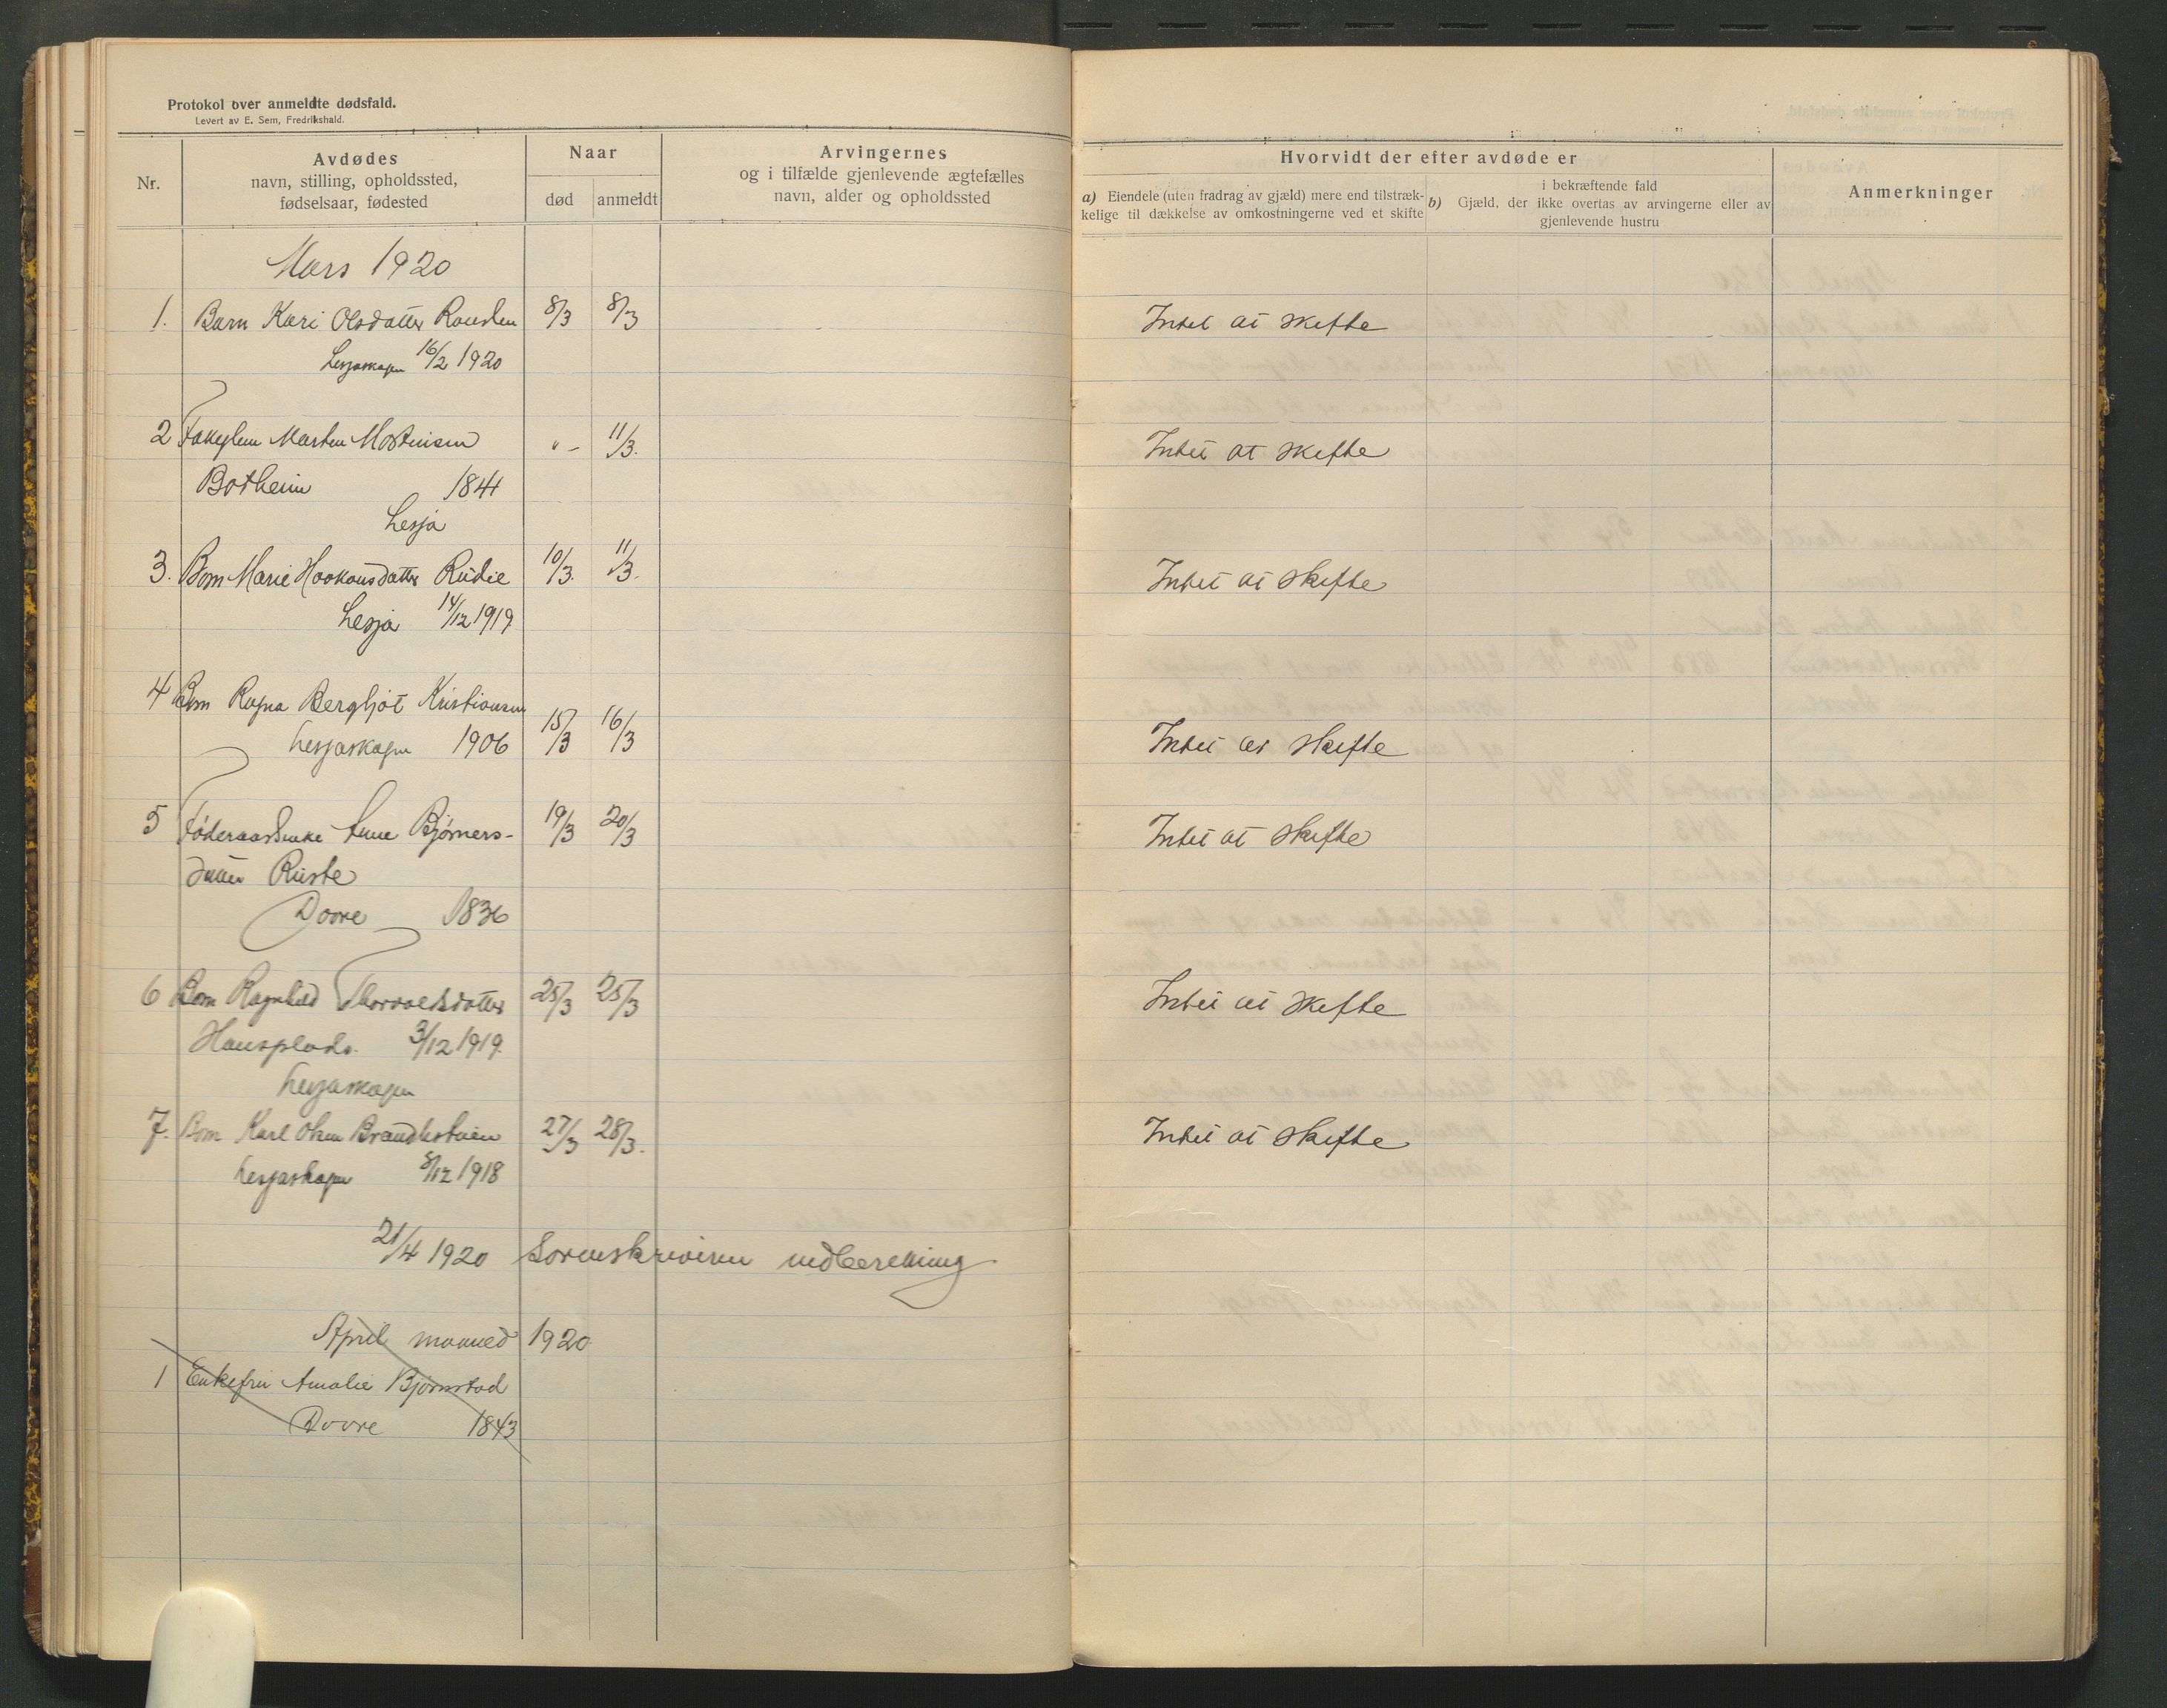 Protokol over anmeldte dødsfald.
Levert av E. Sem, Fredrikshald.
Nr.
Avdødes
navn, stilling, opholdssted,
fødselsaar, fødested
Naar
død
anmeldt
Arvingernes
og i tilfælde gjenlevende ægtefælles
navn, alder og opholdssted
Hvorvidt der efter avdøde er
a) Eiendele (uten fradrag av gjæld) mere end tilstræk-
kelige til dækkelse av omkostningerne ved et skifte
i bekræftende fald
b) Gjæld, der ikke overtas av arvingerne eller av
gjenlevende hustru
Anmerkninger
Mars 1920
1. Barn Kari Olsdatter 8/3 8/3 Intet at skifte
Lesjaskogen 16/2 1920
2 Marten Mortinsen " - 11/3. Intet at skifte
Botheim 1841
Lesja
3. Barn Marie Haakonsdatter Rudie 10/3. 11/3. Intet at skifte
Lesja 14/12 1919
4 Barn Ragna Bergljot Kristiansen
Lesjaskogen 1906 15/3 16/3 Intet at skifte
5 Føderaadsenke Anne Bjørners- 19/3 20/3 Intet at skifte
datter Ruste
Dovre 1836
6 Barn Ragnhild Thorvaldsdatter 25/3 25/3 Intet at skifte
Hansplads. 3/12 1919.
Lesjaskogen
7. Barn Karl Olsen 27/3 28/3. Intet at skifte
Lesjaskogen 8/12 1918
21/4 1920 Sorenskriveren indberetning
April maaned 1920
1 Enkefru Amalie Bjørnstad
Dovre 1843